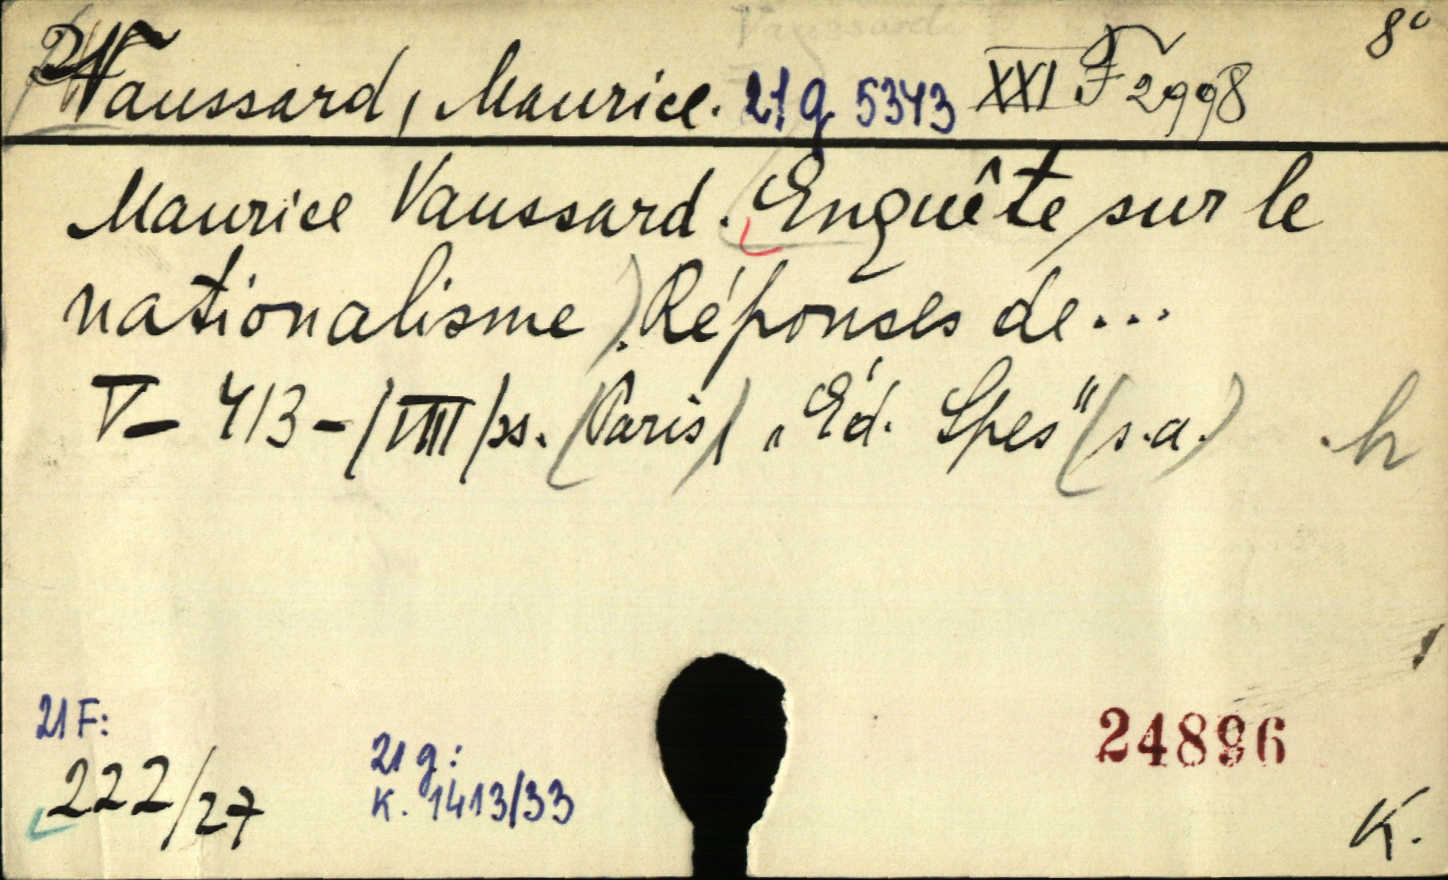 Vaussard
8°
Vaussard, Maurice. 21 g 5343 XXI F 2998
Maurice Vaussard. Enquête sur le
nationalisme). Réponses de...
V– 413 – /VIII/ ss. (Paris) „Éd. Spes" (s.a.) h
24896
21 F:
222/27
21 g:
K. 1413/33
K.